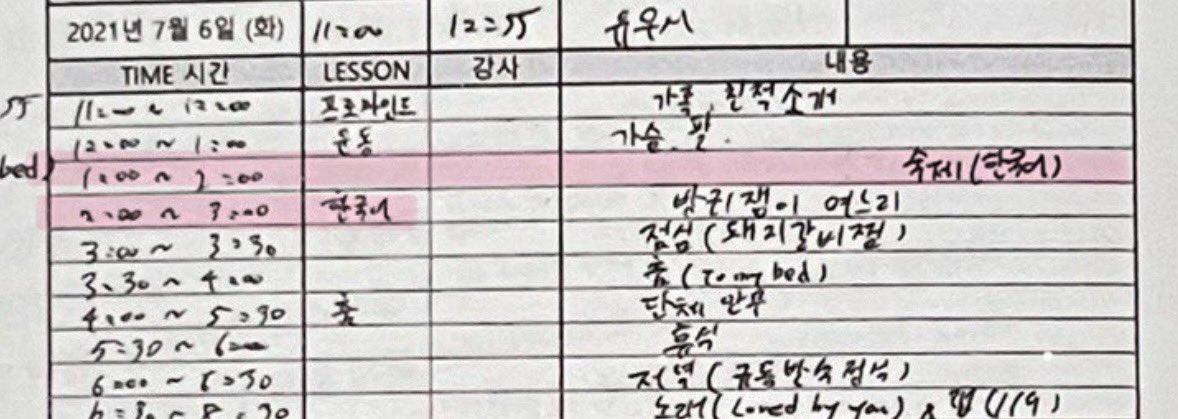 2021년 7월 6일 (화) 11:00 12:55 유우시
TIME 시간 LESSON 감사 내용
55 11:00 ~ 12:00 프로마인드 가족 친척소개
12:00 ~ 1:00 운동 가슴, 팔.
bed) 1:00 ~ 2:00 숙제(한국어)
2:00 ~ 3:00 한국어 방귀쟁이 며느리
3:00 ~ 3:30 점심(돼지갈비찜)
3:30 ~ 4:00 춤 (To my bed)
4:00 ~ 5:30 춤 단체 안무
5:30 ~ 6:00 휴식
6:00 ~ 6:30 저녁(규동반숙정식)
6:30 ~ 8:30 노래(Loved by you) & 랩(119)